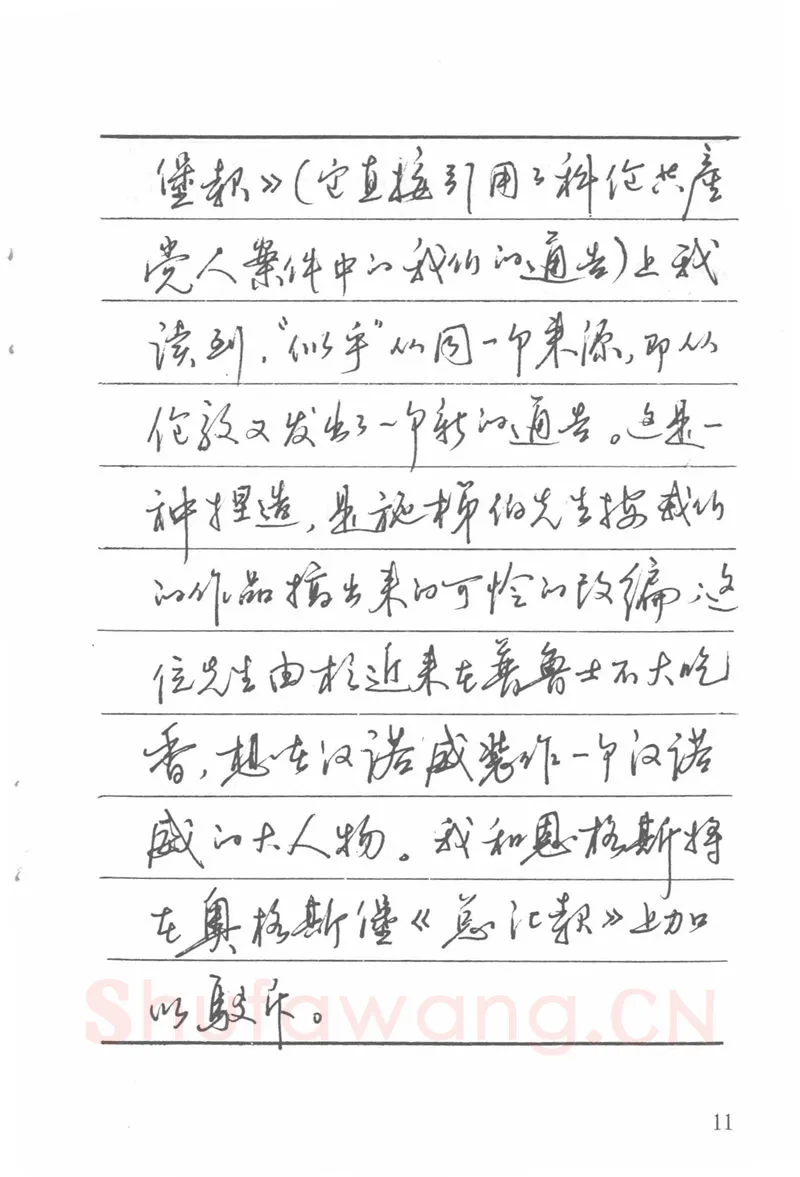 堡报》（它直接引用了科伦共產
党人案件中的我们的通告）上我
读到，“似乎”从同一个来源，即从
伦敦又发出了一个新的通告。这是一
种捏造，是施梯伯先生按我们
的作品搞出来的可怜的改编，这
位先生由于近来在普鲁士不大吃
香，想在汉诺威装作一个汉诺
威的大人物。我和恩格斯将
在奥格斯堡《总汇报》上加
以駁斥。
Shufawang.CN
11